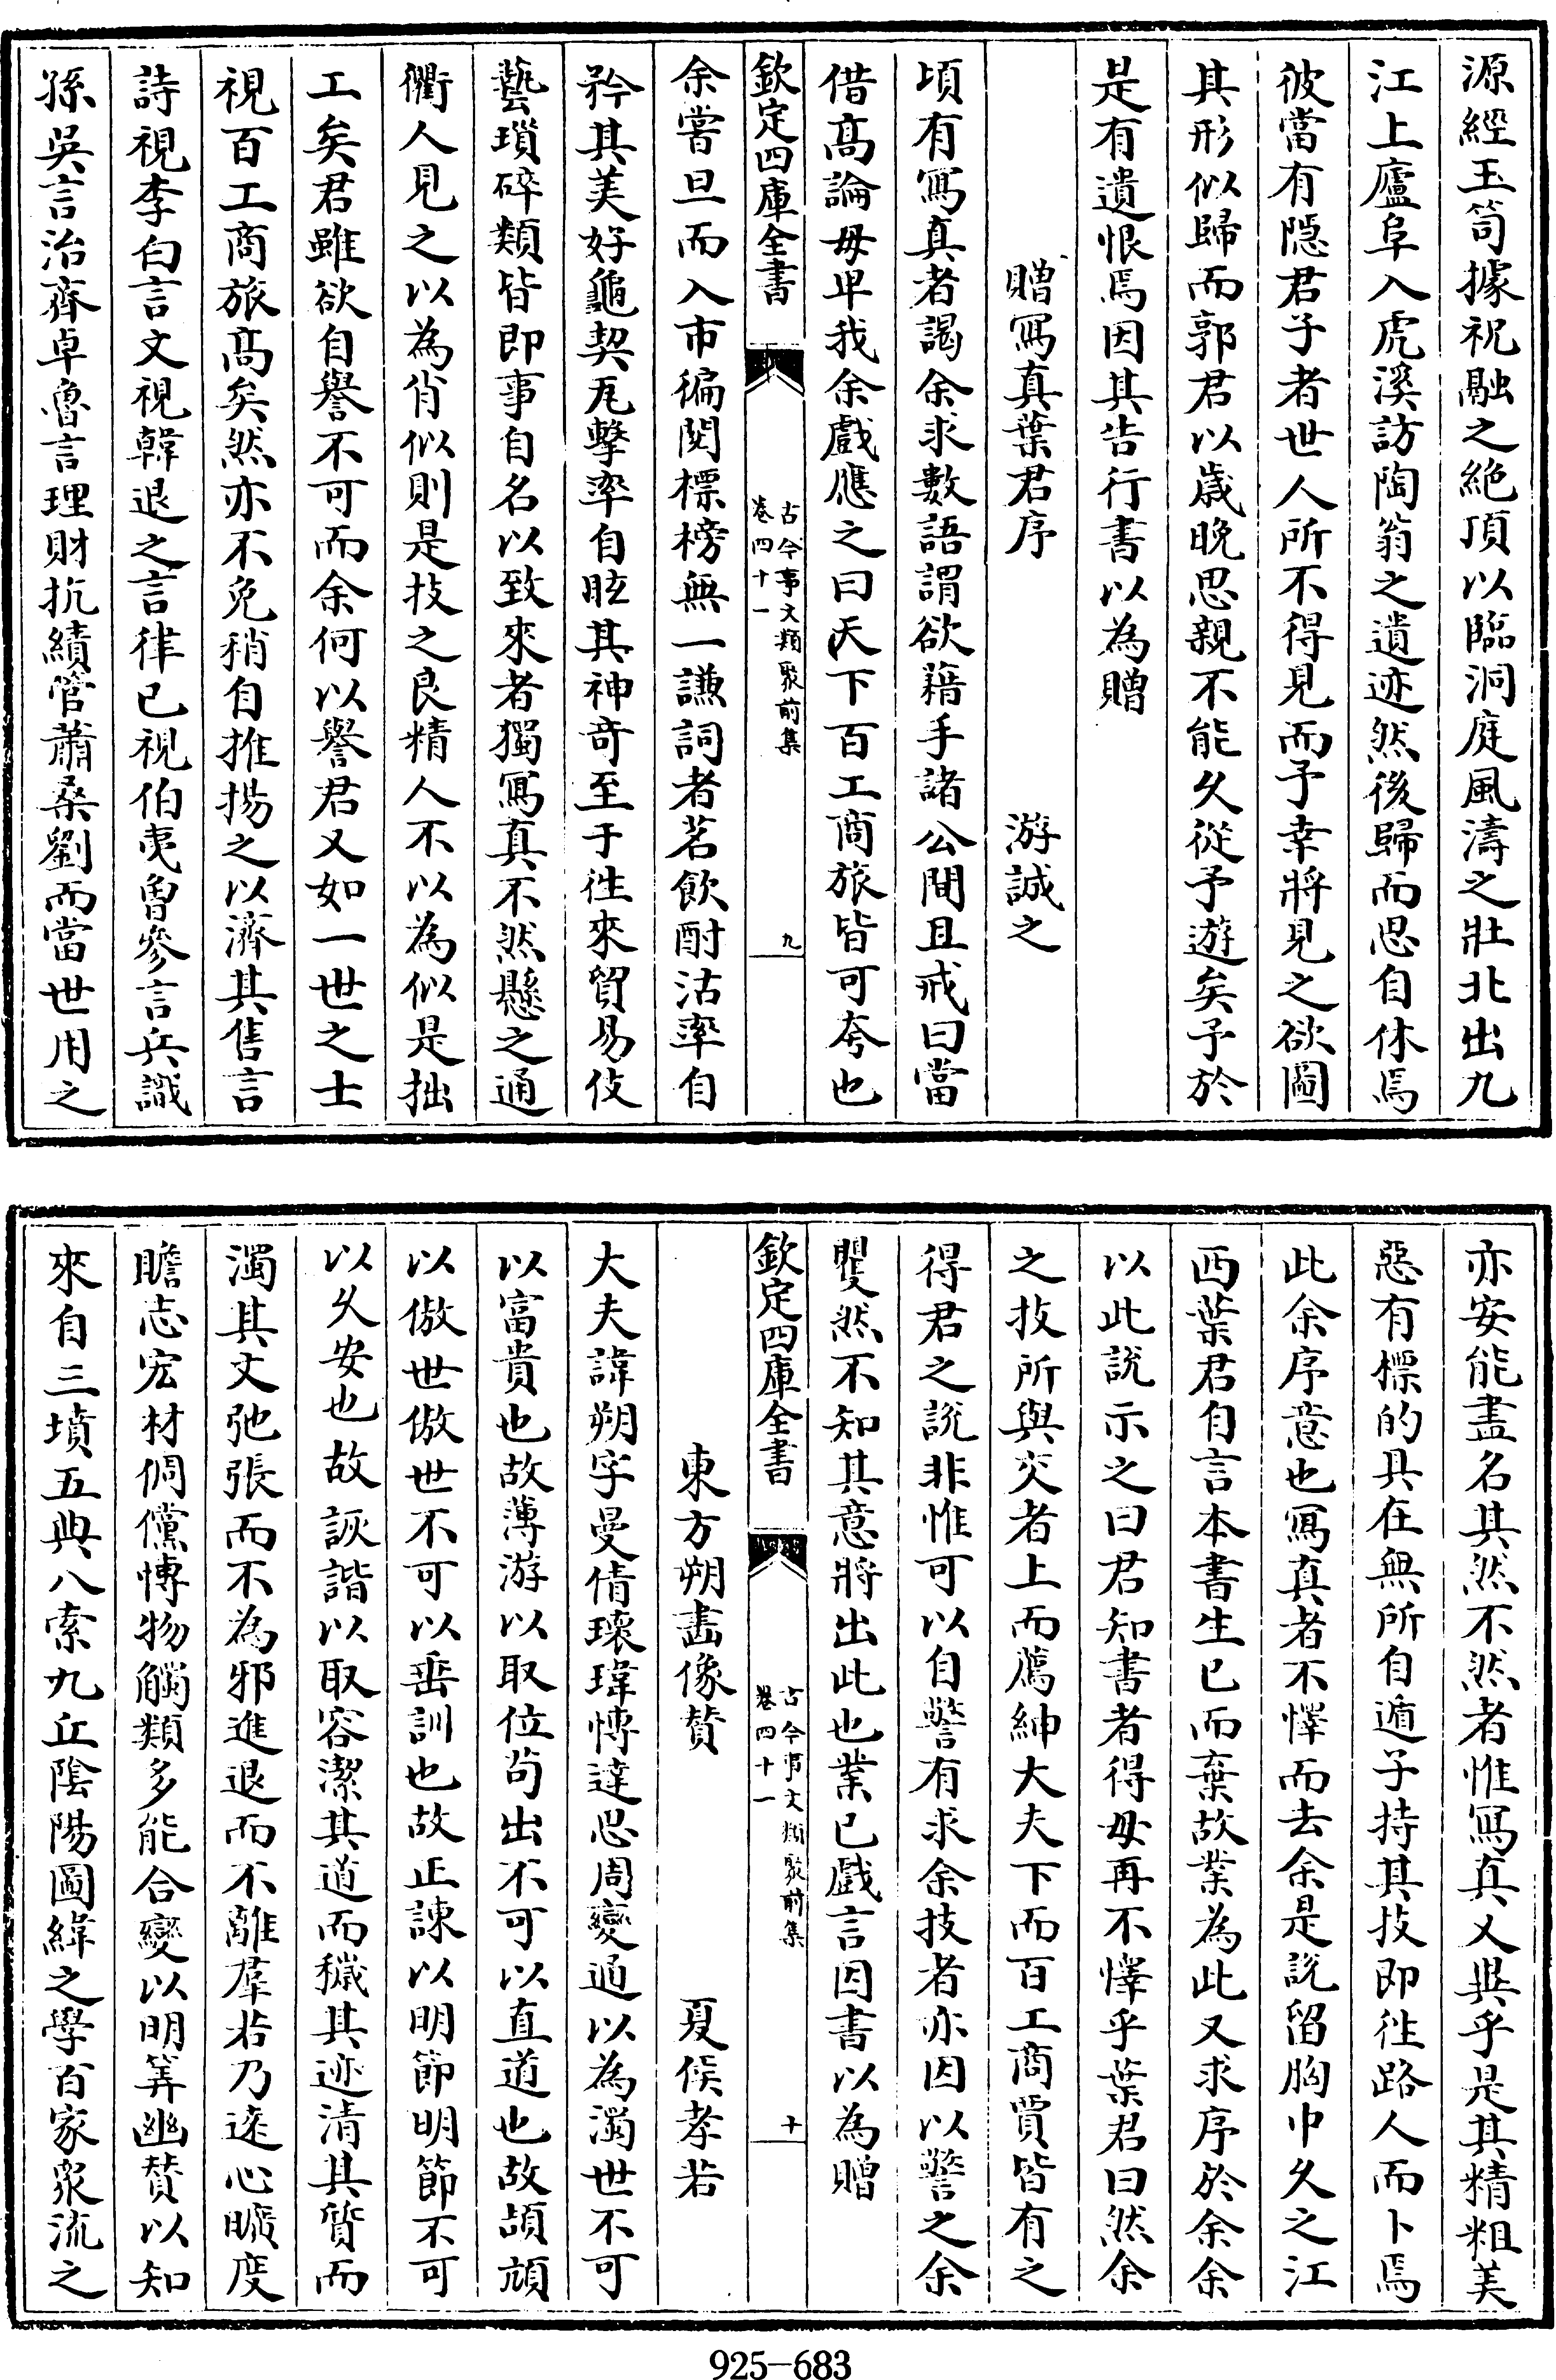 源經玉笥據祝融之絶頂以臨洞庭風濤之壯北出九
江上廬阜入虎溪訪陶翁之遺迹然後歸而思自休焉
彼當有隠君子者世人所不得見而予幸將見之欲圖
其形似歸而郭君以歳晚思親不能久從予遊矣予於
是有遺恨焉因其告行書以為贈
贈冩真葉君序 游誠之
頃有冩真者謁余求數語謂欲藉手諸公間且戒曰當
借髙論毋卑我余戲應之曰天下百工商旅皆可夸也
欽定四庫全書 古今事文類聚前集 卷四十一 九
余嘗旦而入市徧閲標榜無一謙詞者茗飲酎沽率自
矜其美好龜契瓦擊率自眩其神奇至于徃來貿易伎
藝瑣碎類皆即事自名以致來者獨冩真不然懸之通
衢人見之以為肖似則是技之良精人不以為似是拙
工矣君雖欲自譽不可而余何以譽君又如一世之士
視百工商旅髙矣然亦不免稍自推揚之以濟其售言
詩視李白言文視韓退之言律已視伯夷曾參言兵識
孫吳言治齊卓魯言理財抗績管蕭桑劉而當世用之
亦安能盡名其然不然者惟冩真又異乎是其精粗美
惡有標的具在無所自遁子持其技即徃路人而卜焉
此余序意也冩真者不懌而去余是說留胸中久之江
西葉君自言本書生已而棄故業為此又求序於余余
以此說示之曰君知書者得毋再不懌乎葉君曰然余
之技所與交者上而薦紳大夫下而百工商賈皆有之
得君之說非惟可以自警有求余技者亦因以警之余
矍然不知其意將出此也業已戲言因書以為贈
欽定四庫全書 古今事文類聚前集 卷四十一 十
東方朔畫像贊 夏侯孝若
大夫諱朔字曼倩瓌瑋博達思周變通以為濁世不可
以富貴也故薄游以取位苟出不可以直道也故頡頏
以傲世傲世不可以垂訓也故正諫以明節明節不可
以久安也故詼諧以取容潔其道而穢其迹清其質而
濁其文弛張而不為邪進退而不離羣若乃逺心曠度
贍志宏材倜儻博物觸類多能合變以明筭幽贊以知
來自三墳五典八索九丘隂陽圖緯之學百家衆流之
925-683